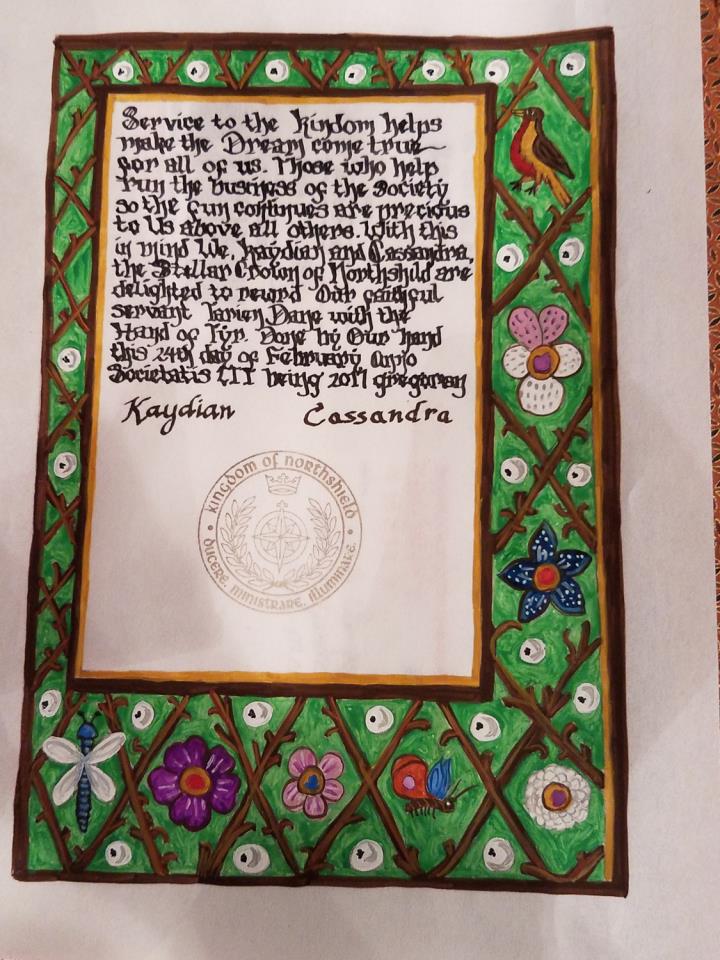 Service to the Kindom helps
make the Dream come true
for all of us. Those who help
run the business of the Society
so the fun continues are precious
to Us above all others. With this
in mind We, Kaydian and Cassandra,
the Stellar Crown of Northshild are
delighted to reward Our faithful
servant Tarien Dane with the
Hand of Tyr. Done by Our hand
this 24th day of February Anno
Societatis LII being 2017 gregorian
Kaydian Cassandra
kingdom of northshield
ducere, ministrare, illuminare.